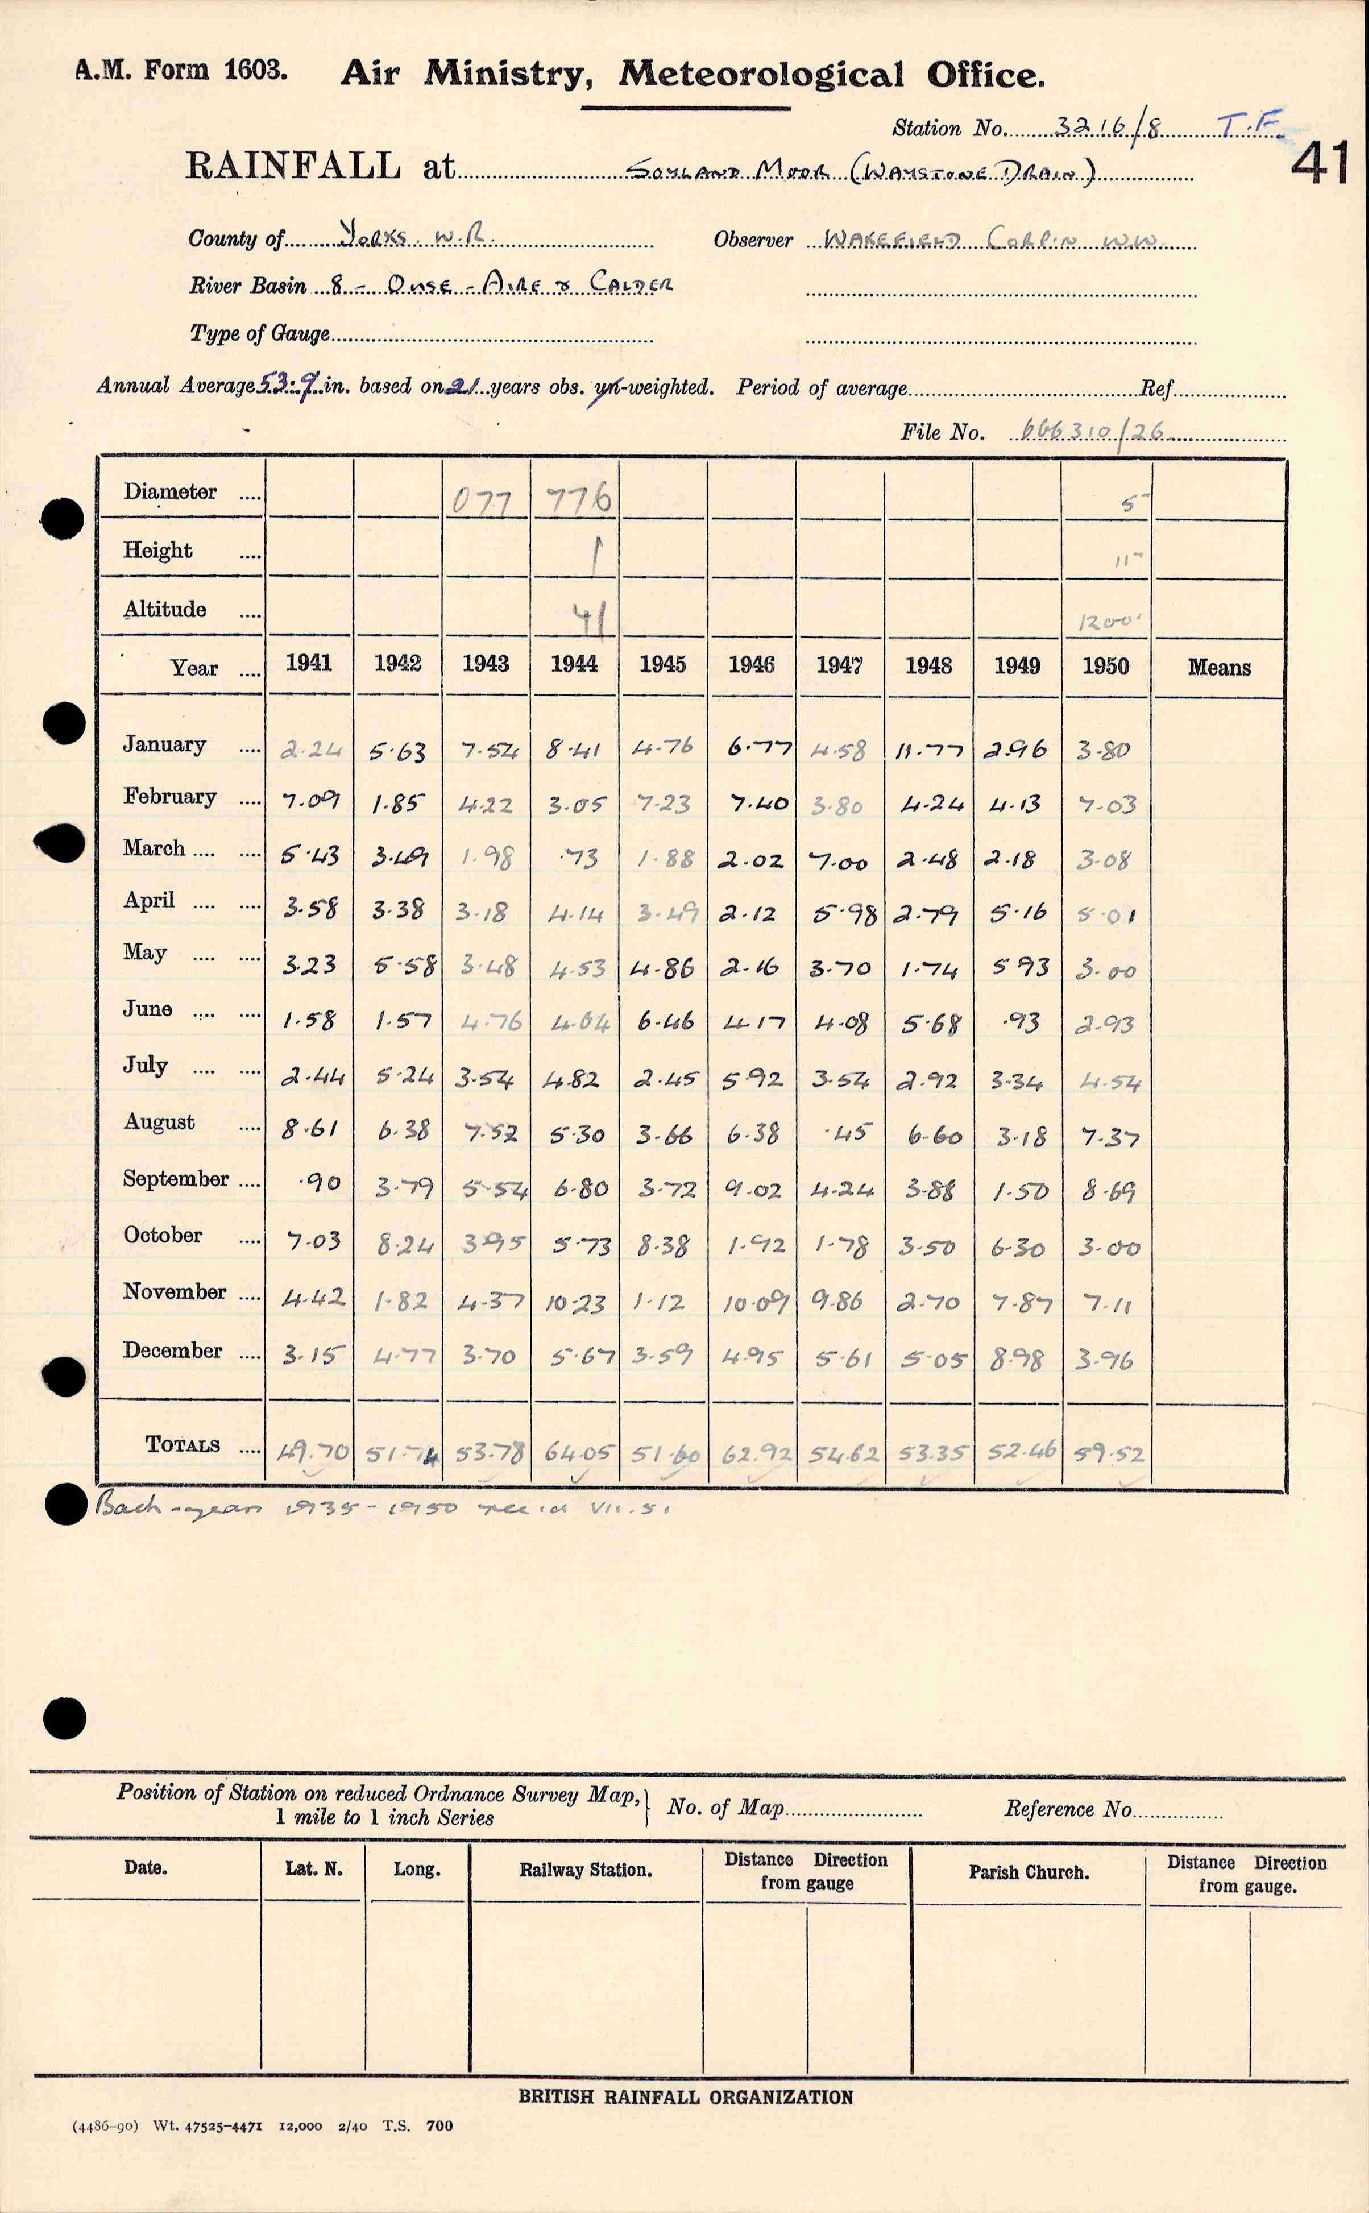 A.M. Form 1603. Air Ministry, Meteorological Office.
Station No. 3216/8 T.F.
41
RAINFALL at SOYLAND MOOR (WAYSTONE DRAIN)
County of YORKS. W.R. Observer WAKEFIELD CORP'N W.W.
River Basin 8 - OUSE - AIRE & CALDER
Type of Gauge
Annual Average 53.9 in. based on 21 years obs. un-weighted. Period of average Ref
File No. 666310/26
Diameter .... 077 776 5"
Height .... 1 11"
Altitude .... 41 1200'
Year .... 1941 1942 1943 1944 1945 1946 1947 1948 1949 1950 Means
January .... 2.24 5.63 7.54 8.41 4.76 6.77 4.58 11.77 2.96 3.80
February .... 7.09 1.85 4.22 3.05 7.23 7.40 3.80 4.24 4.13 7.03
March .... .... 5.43 3.49 1.98 .73 1.88 2.02 7.00 2.48 2.18 3.08
April .... .... 3.58 3.38 3.18 4.14 3.49 2.12 5.98 2.79 5.16 5.01
May .... .... 3.23 5.58 3.48 4.53 4.86 2.16 3.70 1.74 5 93 3.00
June .... .... 1.58 1.57 4.76 4.64 6.46 4.17 4.08 5.68 .93 2.93
July .... .... 2.44 5.24 3.54 4.82 2.45 5.92 3.54 2.92 3.34 4.54
August .... 8.61 6.38 7.52 5.30 3.66 6.38 .45 6.60 3.18 7.37
September .... .90 3.79 5.54 6.80 3.72 9.02 4.24 3.88 1.50 8.69
October .... 7.03 8.24 3.95 5.73 8.38 1.92 1.78 3.50 6.30 3.00
November .... 4.42 1.82 4.37 10.23 1.12 10.09 9.86 2.70 7.87 7.11
December .... 3.15 4.77 3.70 5.67 3.59 4.95 5.61 5.05 8.98 3.96
TOTALS .... 49.70 51.74 53.78 64.05 51.60 62.92 54.62 53.35 52.46 59.52
Back-years 1935-1950 rec'd VII.51
Position of Station on reduced Ordnance Survey Map, } No. of Map Reference No.
1 mile to 1 inch Series
Date. Lat. N. Long. Railway Station. Distance Direction from gauge Parish Church. Distance Direction from gauge.
BRITISH RAINFALL ORGANIZATION
(4486-90) Wt. 47525-4471 12,000 2/40 T.S. 700